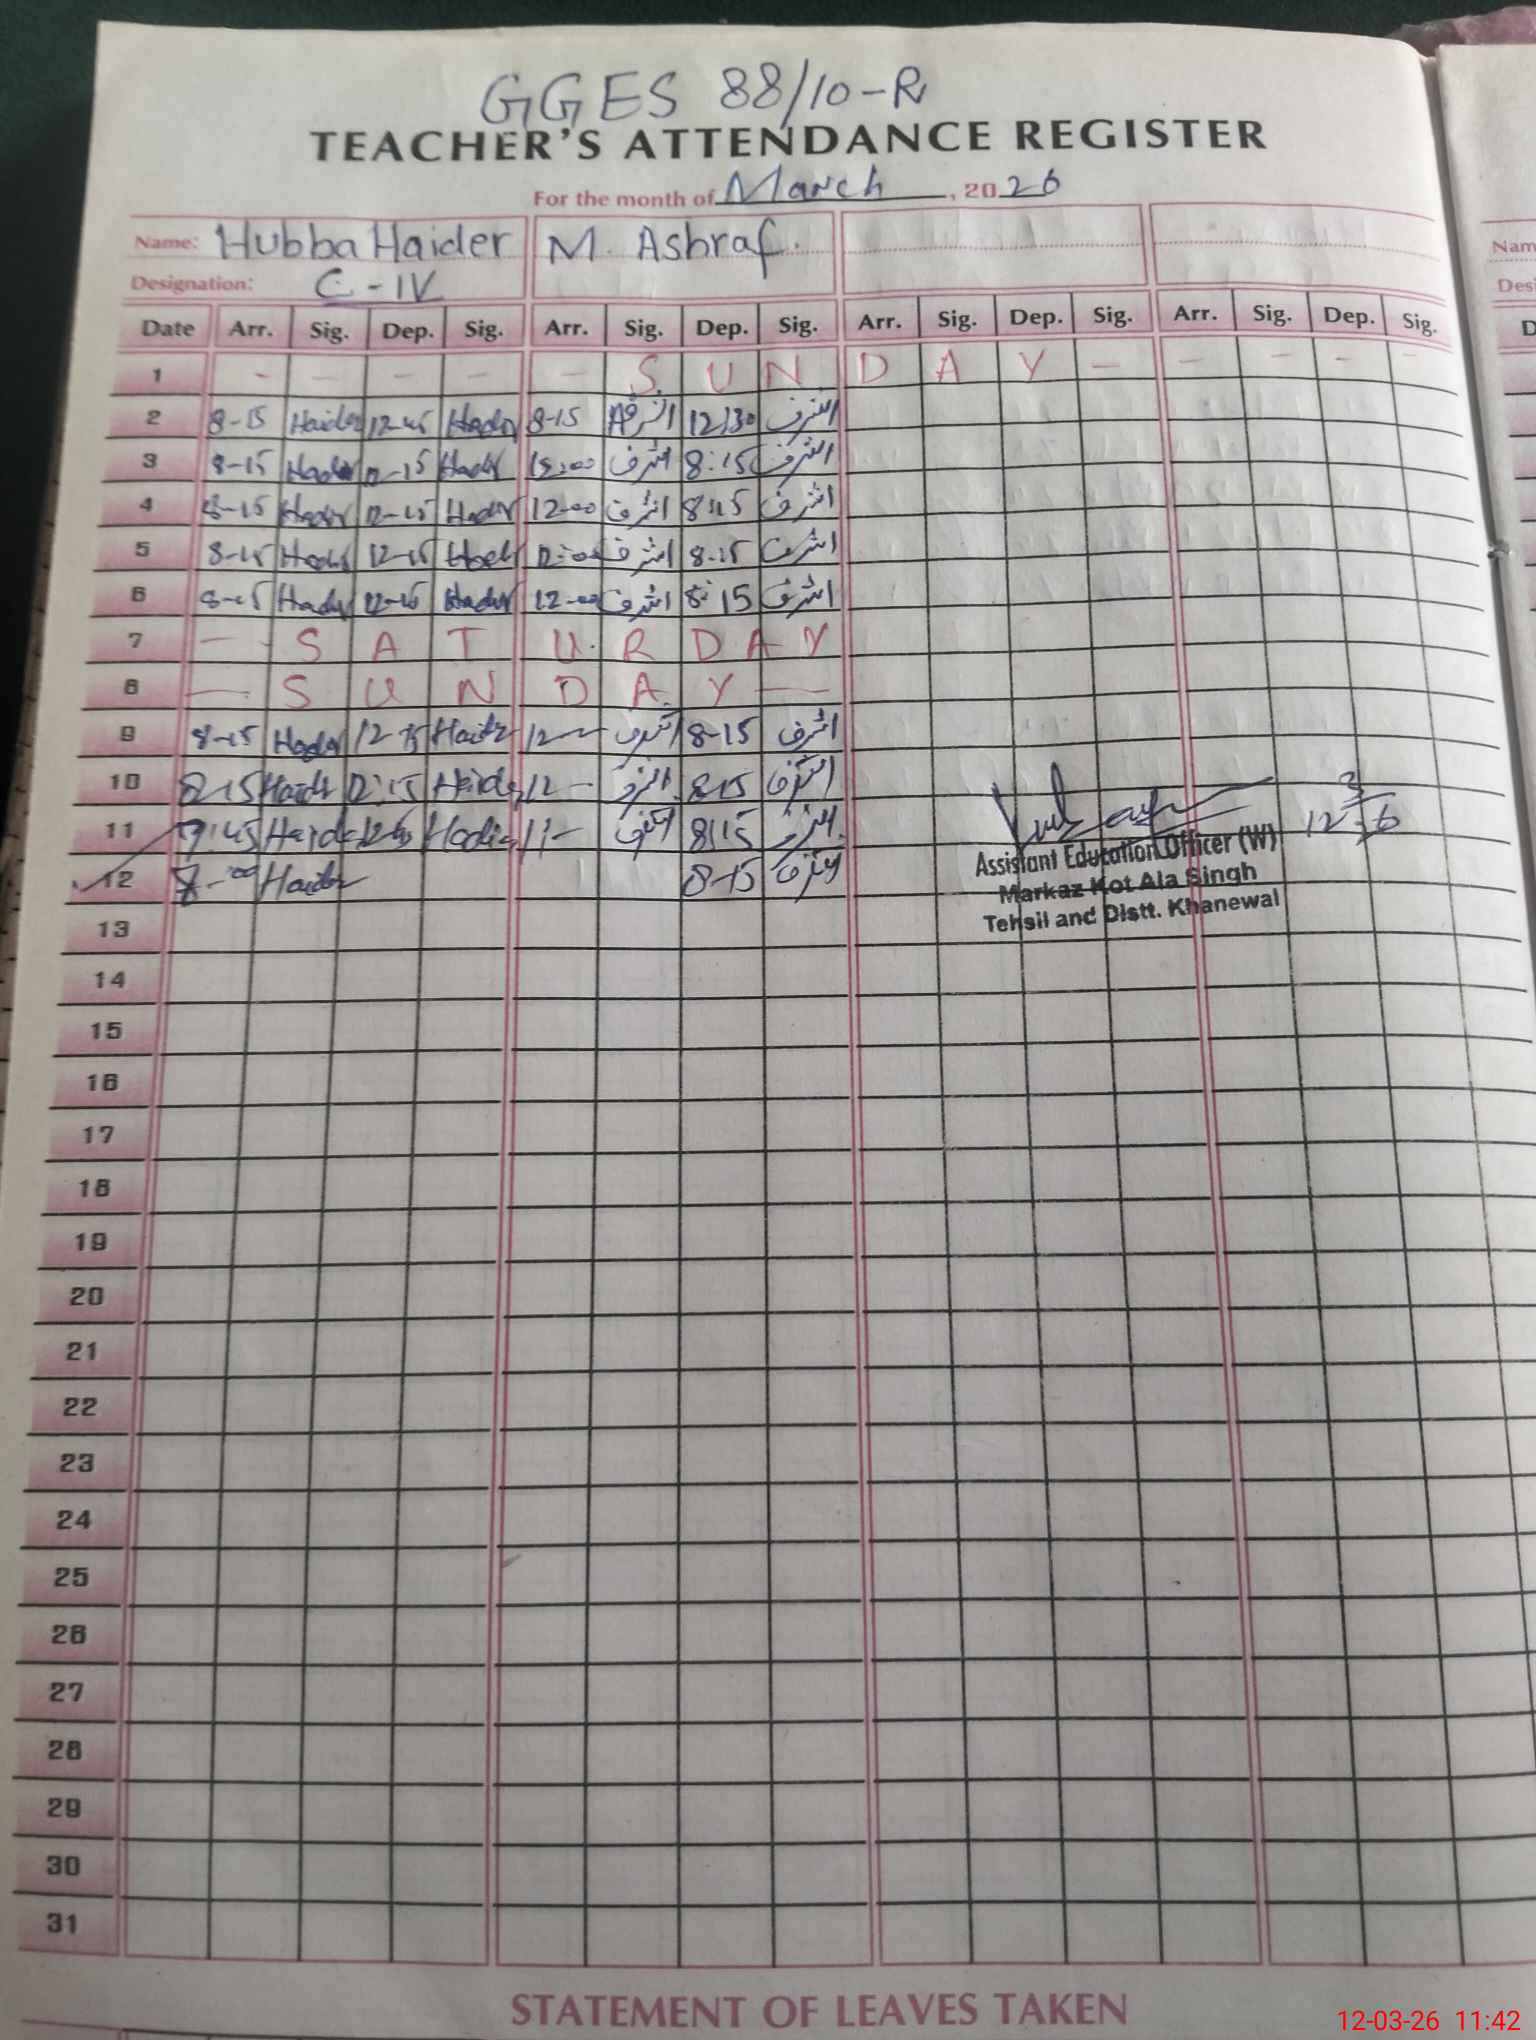 GGES 88/10-R
TEACHER'S ATTENDANCE REGISTER
For the month of March, 2026
Name: Hubba Haider M. Ashraf. Nam
Designation: C-IV Desi
Date Arr. Sig. Dep. Sig. Arr. Sig. Dep. Sig. Arr. Sig. Dep. Sig. Arr. Sig. Dep. Sig. D
1 - - - - - S U N D A Y - - - - -
2 8-15 Haider 12-45 Haider 8-15 اشرف 12/30 اشرف
3 8-15 Haider 12-15 Haider اشرف 8:15 اشرف
4 8-15 Haider 12-15 Haider 12-00 اشرف 8:15 اشرف
5 8-15 Haider 12-15 Haider 12-00 اشرف 8-15 اشرف
6 8-15 Haider 12-15 Haider 12-00 اشرف 8:15 اشرف
7 - S A T U R D A Y
8 - S U N D A Y -
9 8-15 Haider 12-15 Haider 12- اشرف 8-15 اشرف
10 8-15 Haider 12:15 Haider 12- اشرف 8-15 اشرف
11 7:45 Haider Haider 11- اشرف 8:15 اشرف
12 8-00 Haider 8-15 اشرف
Assistant Education Officer (W)
Markaz Kot Ala Singh
Tehsil and Distt. Khanewal
13
14
15
16
17
18
19
20
21
22
23
24
25
26
27
28
29
30
31
STATEMENT OF LEAVES TAKEN
12-03-26 11:42